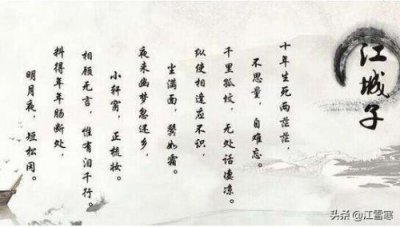 江城子
十年生死两茫茫，
不思量，自难忘。
千里孤坟，无处话凄凉。
纵使相逢应不识，
尘满面，鬓如霜。
夜来幽梦忽还乡，
小轩窗，正梳妆。
相顾无言，惟有泪千行。
料得年年肠断处，
明月夜，短松冈。
头条 @江雪寒